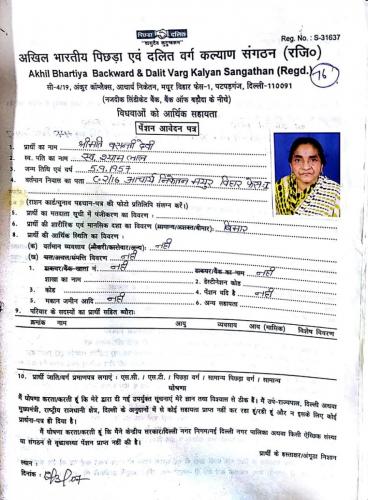 पिछड़ा दलित
Reg. No. : S-31637
अखिल भारतीय पिछड़ा एवं दलित वर्ग कल्याण संगठन (रजि०)
Akhil Bhartiya Backward & Dalit Varg Kalyan Sangathan (Regd.)
76
सी-4/19, अंकुर कॉम्प्लेक्स, आचार्य निकेतन, मयूर विहार फेस-1, पटपड़गंज, दिल्ली-110091
(नजदीक सिंडीकेट बैंक, बैंक ऑफ बड़ौदा के नीचे)
विधवाओं को आर्थिक सहायता
पेंशन आवेदन पत्र
1. प्रार्थी का नाम श्रीमति देवी
2. स्व. पति का नाम स्व. श्याम लाल
3. जन्म तिथि एवं वर्ष 5.9.1957
4. वर्तमान निवास का पता C-2/16 आचार्य निकेतन मयूर विहार फेस I
(राशन कार्ड/चुनाव पहचान-पत्र की फोटो प्रतिलिपि संलग्न करें।)
5. प्रार्थी का मतदाता सूची में पंजीकरण का विवरण :
6. प्रार्थी की शारीरिक एवं मानसिक दशा का विवरण (सामान्य/अशक्त/बीमार): बिमार
8. प्रार्थी की आर्थिक स्थिति का विवरण :
(क) वर्तमान व्यवसाय (नौकरी/कारोबार/अन्य): नहीं
(ख) चल/अचल/संपत्ति विवरण नहीं
1. डाकघर/बैंक-खाता नं. नहीं डाकघर/बैंक-का नाम नहीं
शाखा का नाम 2. डेस्टीनेशन कोड
3. कोड 4. पेंशन यदि है नहीं
5. मकान जमीन आदि नहीं 6. अन्य सहायता
9. परिवार के सदस्यों का प्रार्थी सहित ब्यौरा:
क्रमांक नाम आयु व्यवसाय आय (मासिक) विशेष विवरण
10. प्रार्थी जाति/वर्ग प्रमाणपत्र लगाएं : एस.सी. / एस.टी. / पिछड़ा वर्ग / सामान्य पिछड़ा वर्ग / सामान्य
घोषणा
मैं घोषणा करता/करती हूं कि मेरे द्वारा दी गई उपर्युक्त सूचनाएं मेरे ज्ञान तथा विश्वास से ठीक हैं। मैं उप-राज्यपाल, दिल्ली अथवा
मुख्यमंत्री, राष्ट्रीय राजधानी क्षेत्र, दिल्ली के अनुदानों में से कोई सहायता प्राप्त नहीं कर रहा हूं/रही हूं और न इसके लिए कोई
प्रार्थना-पत्र ही दिया है।
मैं घोषणा करता/करती हूं कि मैंने केन्द्रीय सरकार/दिल्ली नगर निगम/नई दिल्ली नगर पालिका अथवा किसी ऐच्छिक संस्था
या संगठन से वृद्धावस्था पेंशन प्राप्त नहीं की है।
प्रार्थी के हस्ताक्षर/अंगूठा निशान
स्थान :
दिनांक :